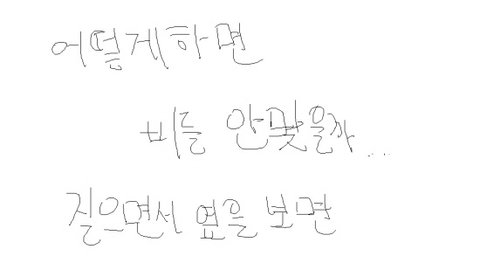 어떻게하면
비를 안맞을까...
짙으면서 옆을 보면